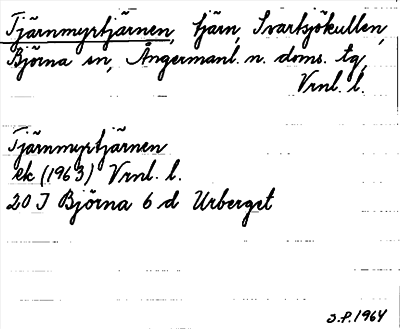 Tjärnmyrtjärnen, tjärn, Svartsjökullen,
Björna sn, Ångermanl. n. doms. tg,
Vrnl. l.
Tjärnmyrtjärnen
ek (1963) Vrnl. l.
20 J Björna 6 d Urberget
S.P. 1964